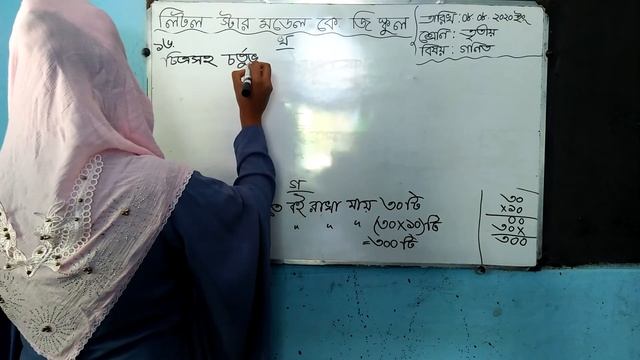 লিটল স্টার মডেল কে জি স্কুল
তারিখ: ০৪·০৪·২০২০ইং
শ্রেণি: তৃতীয়
বিষয়: গণিত
১৬.
খ
চিত্রসহ চর্তুভু
গ
বই রাখা যায় ৩০টি
" " " (৩০X১০)টি
=৩০০টি
৩০
X১০
০০
৩০X
৩০০